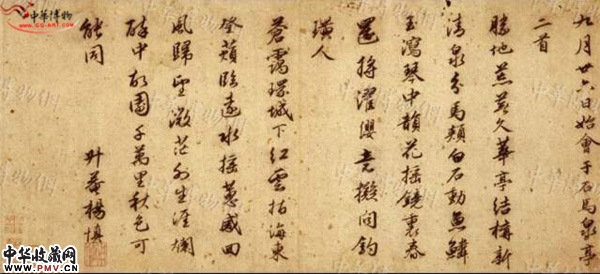 九月廿六日始會于石馬泉亭
二首
勝地蕪久華亭結構新
清泉分馬頰白石動魚鱗
玉瀉琴中韻花摇鏡裏春
還將濯纓意擬問釣
璜人
蒼靄環城下紅雲拍海東
登蘋臨遠水摇蕙感回
風歸望渺茫外生涯爛
醉中故園千萬里秋色可
能同
升菴楊慎
中華博物
WWW.GG-ART.COM
中华收藏网
WWW.PMV.CN
中华收藏网
WWW.PMV.CN